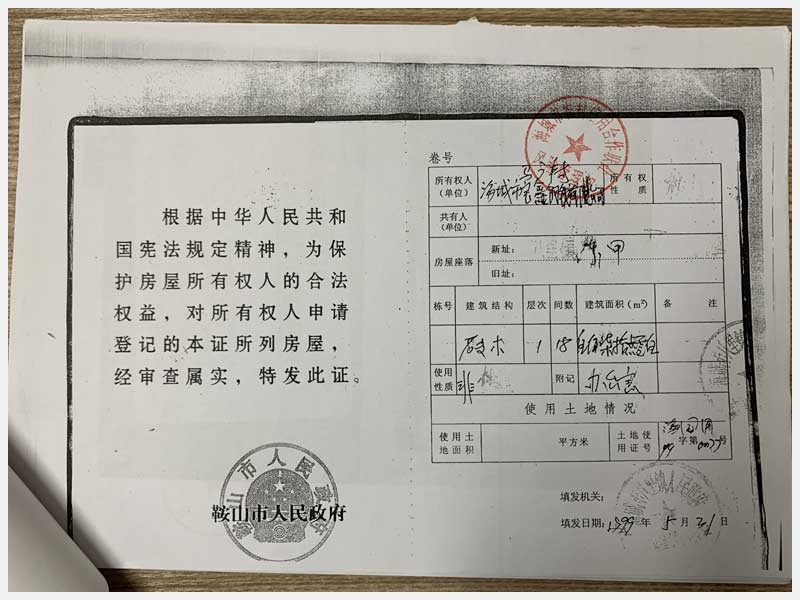 根据中华人民共和
国宪法规定精神,为保
护房屋所有权人的合法
权益,对所有权人申请
登记的本证所列房屋,
经审查属实,特发此证。
鞍山市人民政府
鞍山市人民政府
卷号
所有权人
(单位)
海城市
所有权
性质
共有人
(单位)
房屋座落
新址:
旧址:
栋号 建筑结构 层次 间数 建筑面积(m²) 备注
砖木 1 18
使用
性质
非
附记
办公室
使用土地情况
使用土
地面积
平方米
土地使
用证号
字第 号
填发机关:
填发日期:1999年5月21日